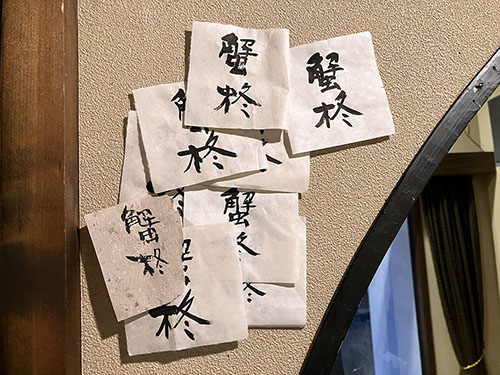 蟹
柊
蟹
柊
蟹
柊
蟹
柊
蟹
柊
柊